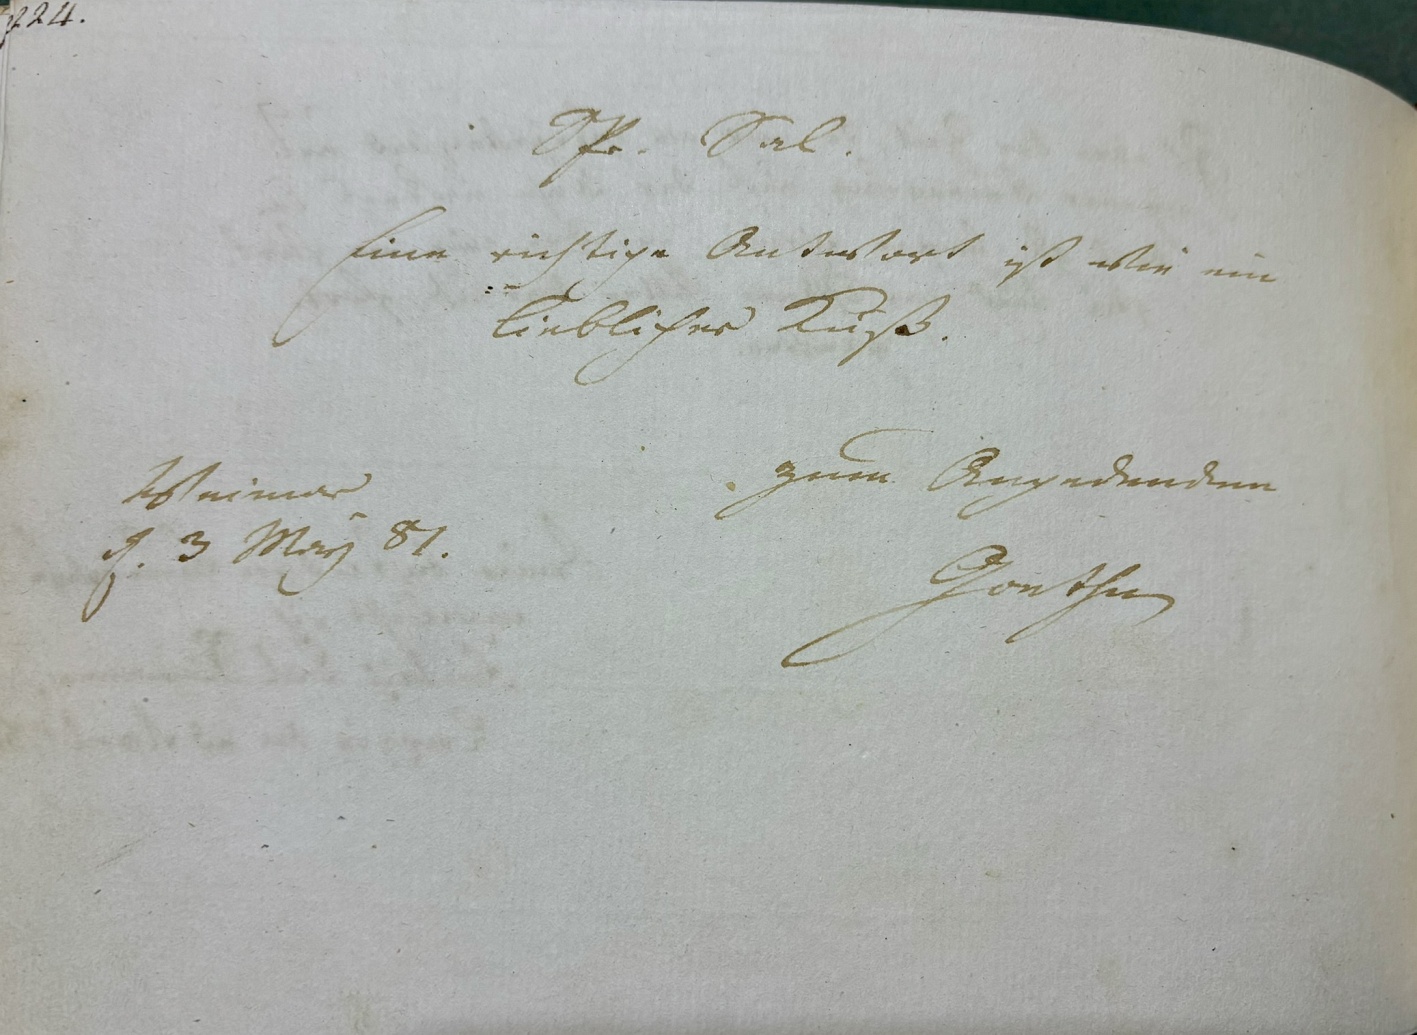 224.
Spr. Sal.
Eine richtige Antwort ist wie ein
lieblicher Kuß.
zum Angedencken
Weimar
d. 3 May 81.
Goethe